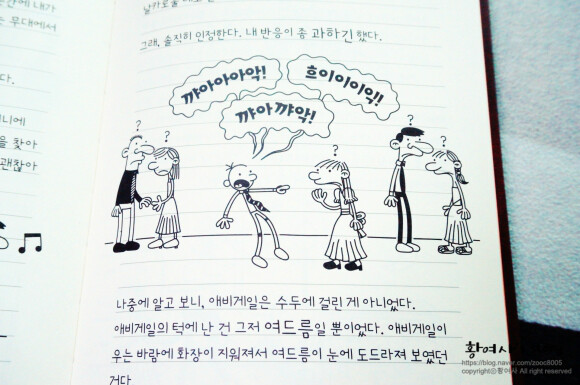 그래, 솔직히 인정한다. 내 반응이 좀 과하긴 했다.
꺄아아아악!
흐이이이익!
꺄아 꺄악!
?
?
?
?
?
나중에 알고 보니, 애비게일은 수두에 걸린 게 아니었다.
애비게일의 턱에 난 건 그저 여드름일 뿐이었다. 애비게일이
우는 바람에 화장이 지워져서 여드름이 눈에 도드라져 보였던
거다
무대에서
다.
니에
을 찾아
괜찮아
황여사
https://blog.naver.com/zooc8005
copyright©황여사 All right reserved